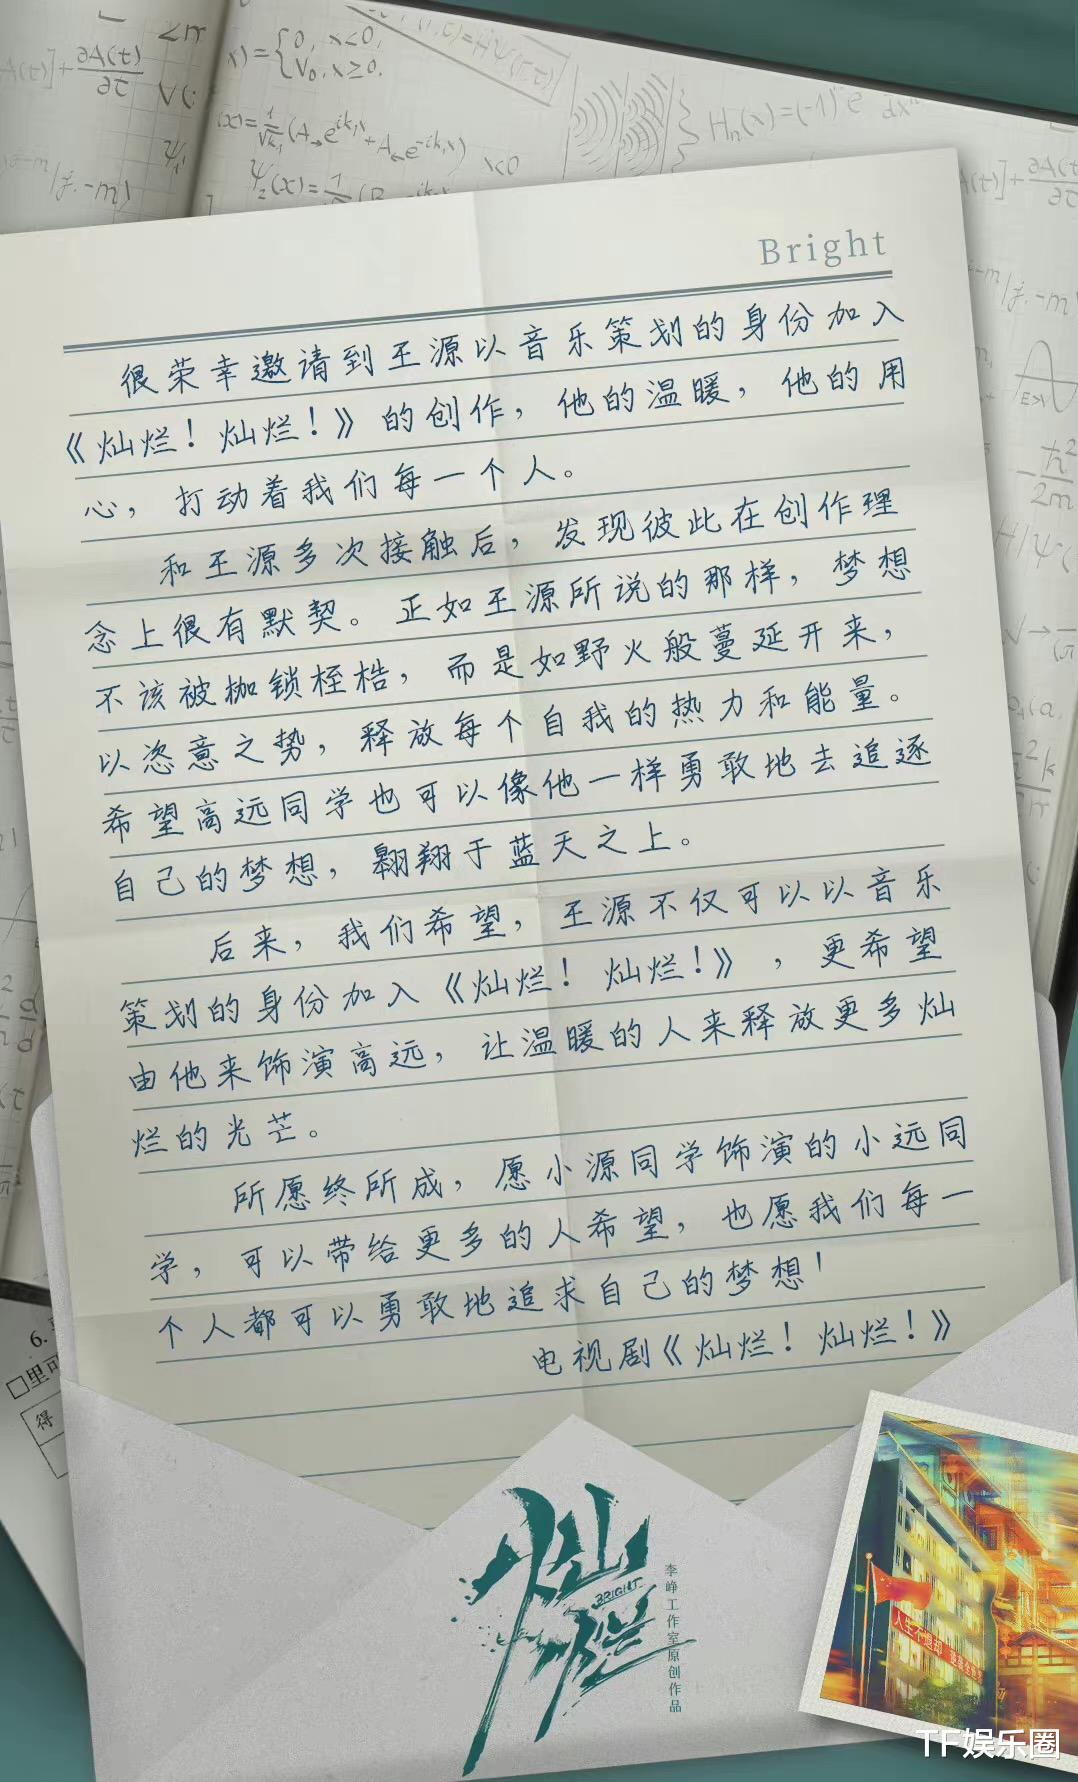 Bright
很荣幸邀请到王源以音乐策划的身份加入
《灿烂！灿烂！》的创作，他的温暖，他的用
心，打动着我们每一个人。
和王源多次接触后，发现彼此在创作理
念上很有默契。正如王源所说的那样，梦想
不该被枷锁桎梏，而是如野火般蔓延开来，
以恣意之势，释放每个自我的热力和能量。
希望高远同学也可以像他一样勇敢地去追逐
自己的梦想，翱翔于蓝天之上。
后来，我们希望，王源不仅可以以音乐
策划的身份加入《灿烂！灿烂！》，更希望
由他来饰演高远，让温暖的人来释放更多灿
烂的光芒。
所愿终所成，愿小源同学饰演的小远同
学，可以带给更多的人希望，也愿我们每一
个人都可以勇敢地追求自己的梦想！
电视剧《灿烂！灿烂！》
6.
得
灿烂
BRIGHT
李峥工作室原创作品
TF娱乐圈